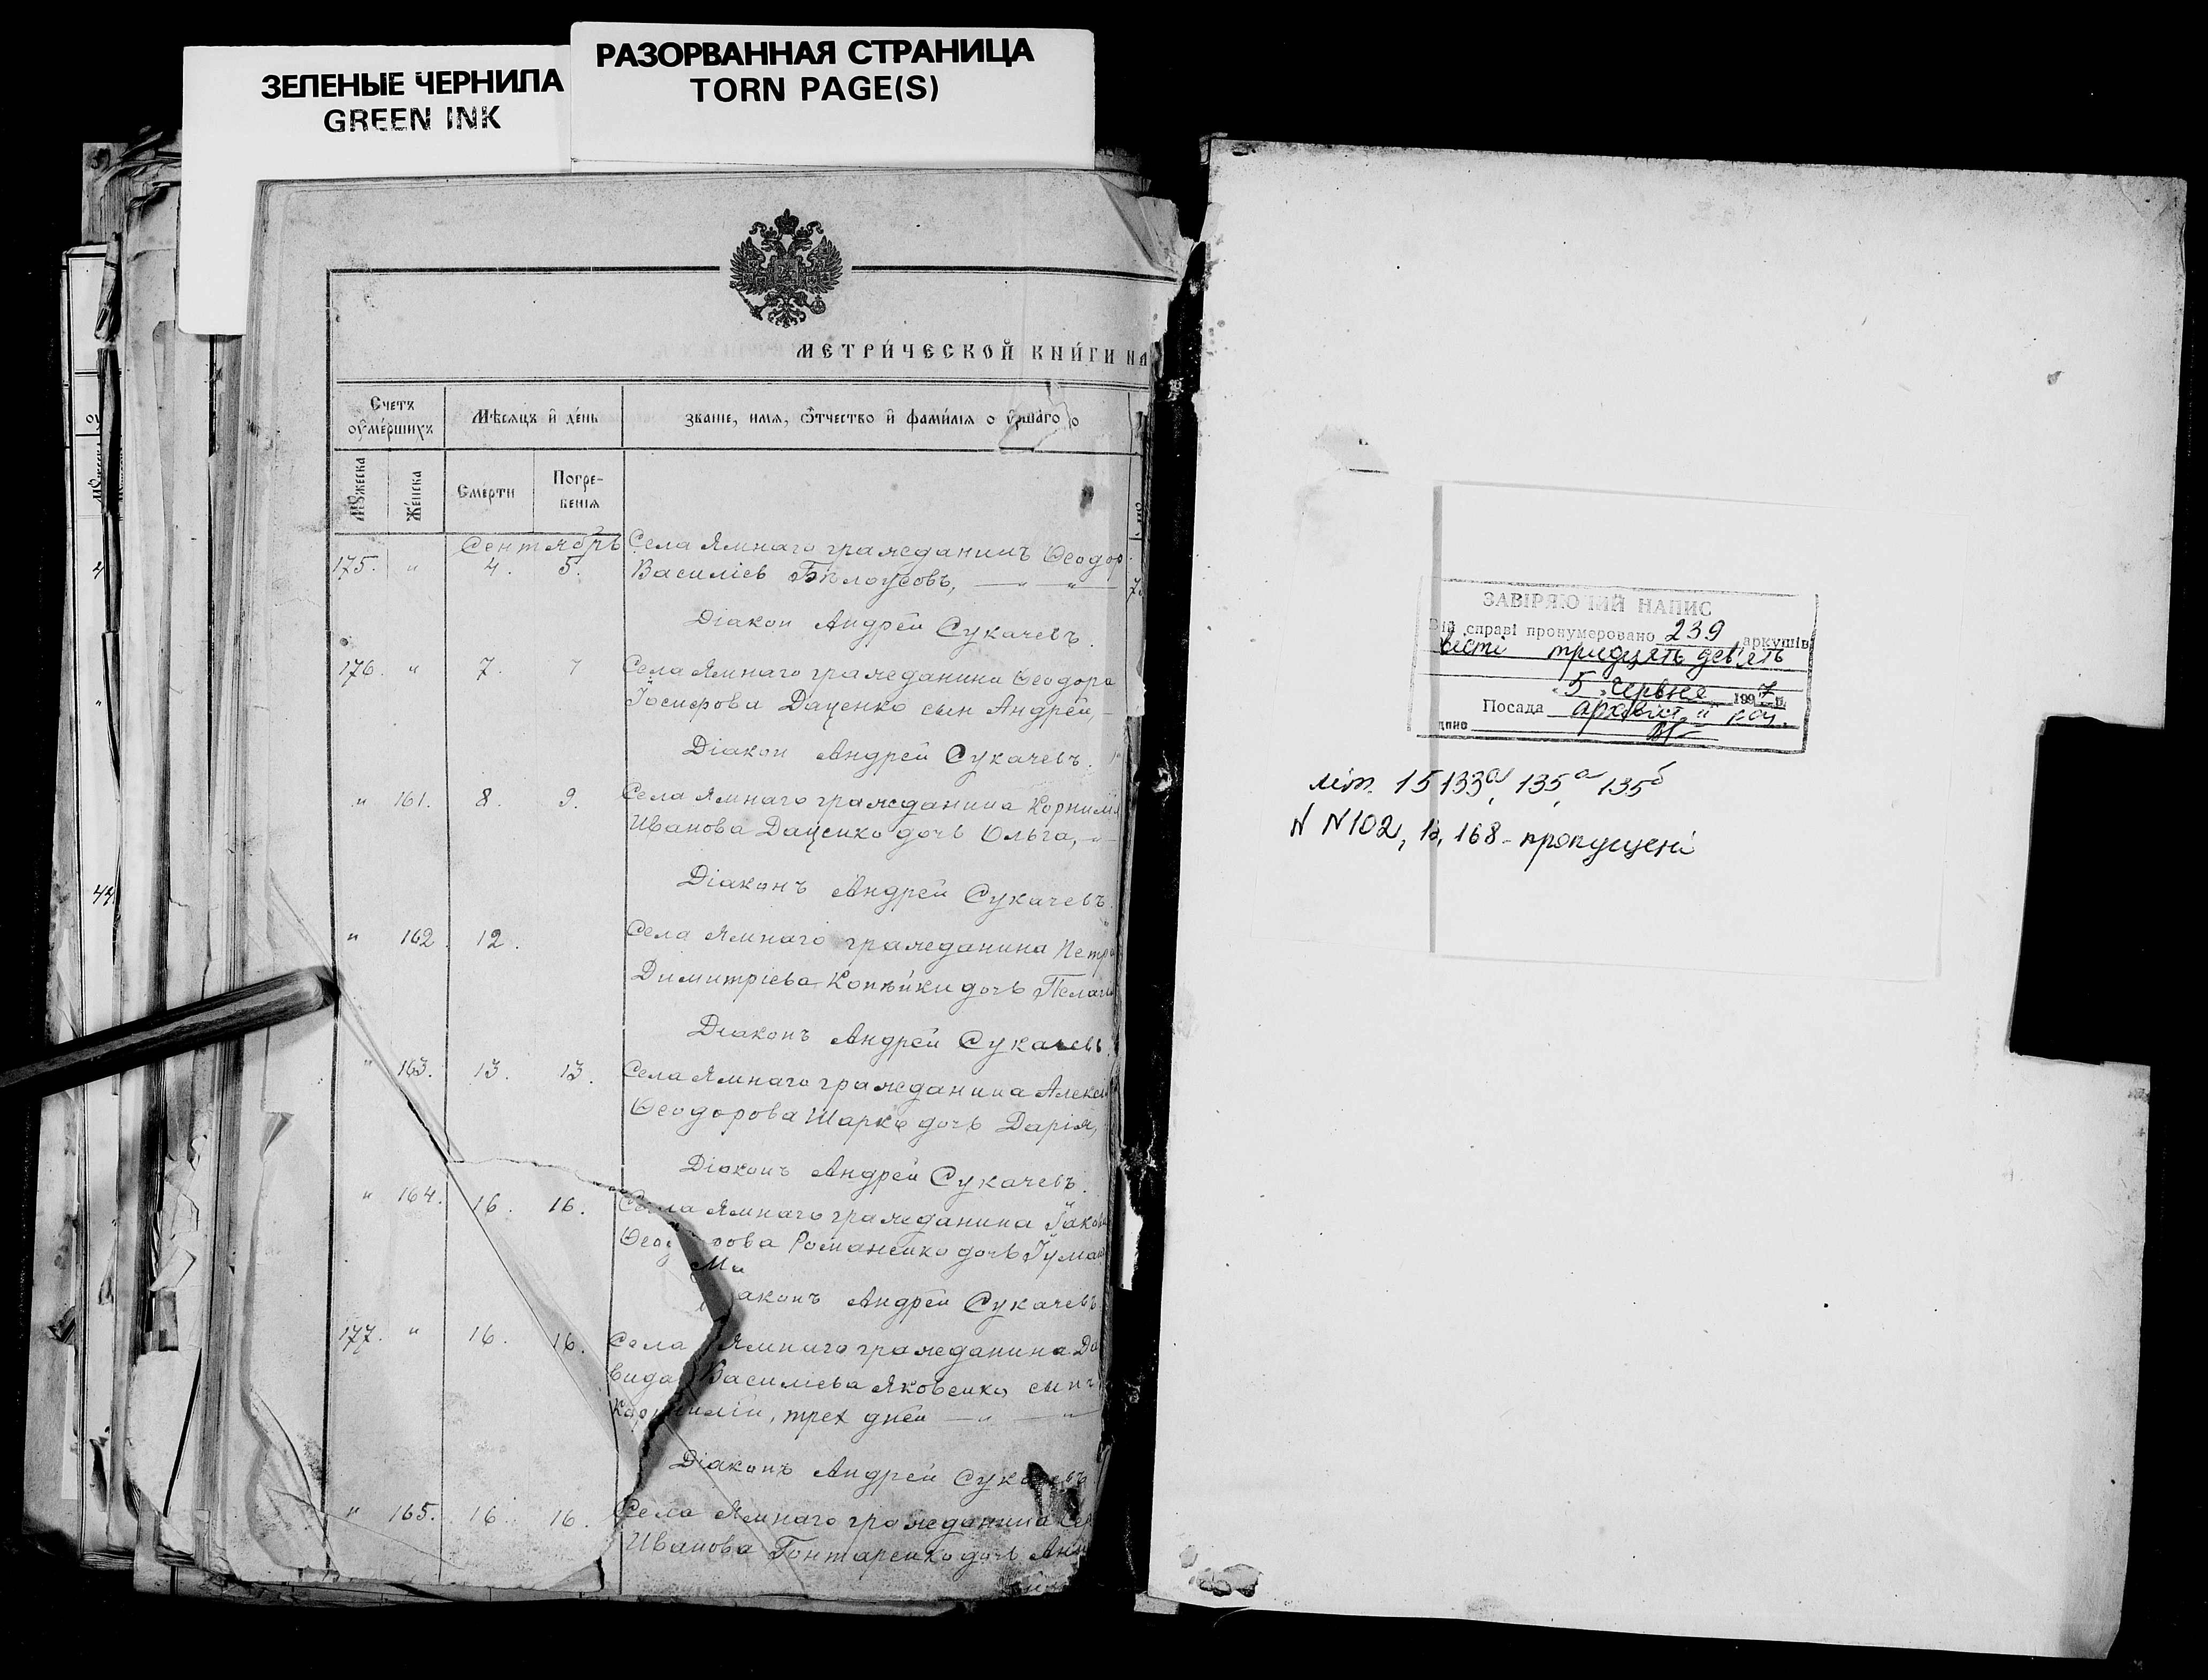 ЗЕЛЕНЫЕ ЧЕРНИЛА
GREEN INK
РАЗОРВАННАЯ СТРАНИЦА
TORN PAGE(S)
МЕТРИ́ЧЕСКОЙ КНИ́ГИ НА
Счетъ оумéршихъ
Мѣсяцъ и де́нь
званіе, имя, ѻ҆тчество и фами́лія о
Мꙋжеска
Же́нска
Сме́рти
Погре-
бенія
Сентябрь
175. " 4. 5.
Села Ямнаго гражданинъ Ѳеодор
Василіев Бѣлоусовъ, — " — " —
Діакон Андрей Сукачевъ.
176. " 7. 7
Села Ямнаго гражданина Ѳеодора
Іосифова Даценко сын Андрей,
Діакон Андрей Сукачевъ.
" 161. 8. 9.
Села Ямнаго гражданина Корнилія
Иванова Даценко дочь Ольга, — " —
Діаконъ Андрей Сукачевъ.
" 162. 12.
Села Ямнаго гражданина Петра
Димитріева Копѣйки дочь Пелагі
Діаконъ Андрей Сукачевъ.
" 163. 13. 13.
Села Ямнаго гражданина Алексѣ
Ѳеодорова Шарко дочь Дарія,
Діаконъ Андрей Сукачевъ.
" 164. 16. 16.
Села Ямнаго гражданина Іаков
Ѳеод рова Романенко дочь
аконъ Андрей Сукачевъ
177. " 16. 16.
Села Ямнаго гражданина Да
вида Василіева Яковенко сынъ
Корнилій, трех дней — " — " —
Діаконъ Андрей Сукачевъ.
" 165. 16. 16.
Села Ямнаго гражданина
Иванова Гонтаренко дочь Анн
ЗАВІРЯЮЧИЙ НАПИС
справі пронумеровано 239 аркушів
двісті тридцять дев'ять
"5" червня 1997 р.
Посада архівіст II кат.
літ. 15 133а, 135а, 135б
N N102, 168 - пропущені